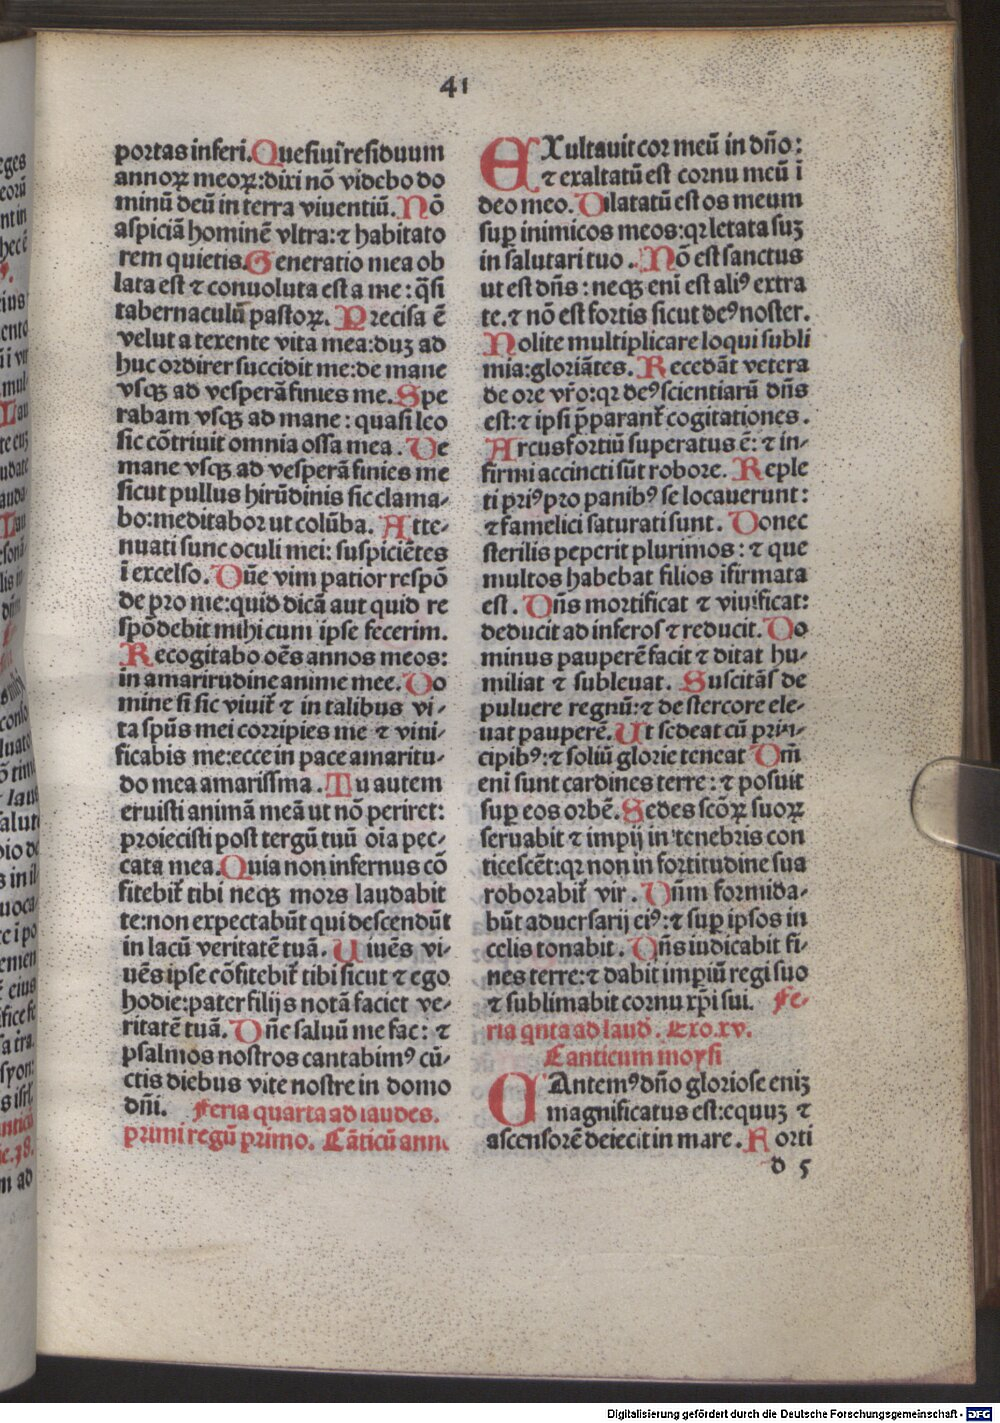 41
portas inferi. Quesiui residuum
annoꝝ meoꝝ: dixi nō videbo do
minū deū in terra viuentiū. Nō
aspiciā hominē vltra: ⁊ habitato
rem quietis. Generatio mea ob
lata est ⁊ conuoluta est a me: q̄si
tabernaculū pastoꝝ. Precisa ē
velut a texente vita mea: duꝫ ad
huc ordirer succidit me: de mane
vsqꝫ ad vesperā finies me. Spe
rabam vsqꝫ ad mane: quasi leo
sic cōtriuit omnia ossa mea. De
mane vsqꝫ ad vesperā finies me
sicut pullus hirūdinis sic clama-
bo: meditabor ut colūba. Atte-
nuati sunc oculi mei: suspiciētes
ī excelso. Dñe vim patior respō
de pro me: quid dicā aut quid re
spōdebit mihi cum ipse fecerim.
Recogitabo oēs annos meos:
in amaritudine anime mee. Do
mine si sic viuit̄ ⁊ in talibus vi-
ta spūs mei corripies me ⁊ viui-
ficabis me: ecce in pace amaritu-
do mea amarissma. Tu autem
eruisti animā meā ut nō periret:
proiecisti post tergū tuū oīa pec-
cata mea. Quia non infernus cō
fitebit̄ tibi neqꝫ mors laudabit
te: non expectabūt qui descendūt
in lacū veritatē tuā. Uiuēs vi-
uēs ipse cōfitebit̄ tibi sicut ⁊ ego
hodie: pater filijs notā faciet ve-
ritatē tuā. Dñe saluū me fac: ⁊
psalmos nostros cantabimꝰ cū-
ctis diebus vite nostre in domo
dñi. Feria quarta ad laudes.
primi regū primo. Cāticū anne
EXultauit cor meū in dño:
⁊ exaltatū est cornu meū ī
deo meo. Dilatatū est os meum
suꝑ inimicos meos: qꝛ letata suꝫ
in salutari tuo. Nō est sanctus
ut est dñs: neqꝫ enī est aliꝰ extra
te. ⁊ nō est fortis sicut deꝰ noster.
Nolite multiplicare loqui subli
mia: gloriātes. Recedāt vetera
de ore vr̄o: qꝛ deꝰ scientiarū dñs
est: ⁊ ipsi p̄parant̄ cogitationes.
Arcus fortiū superatus ē: ⁊ in-
firmi accincti sūt robore. Reple
ti priꝰ pro panibꝰ se locauerunt:
⁊ famelici saturati sunt. Donec
sterilis peperit plurimos: ⁊ que
multos habebat filios ifirmata
est. Dñs mortificat ⁊ viuificat:
deducit ad inferos ⁊ reducit. Do
minus pauperē facit ⁊ ditat hu-
miliat ⁊ subleuat. Suscitās de
puluere regnū: ⁊ de stercore ele-
uat pauperē. Ut sedeat cū prin-
cipibꝰ: ⁊ soliū glorie teneat Dm̄
enī sunt cardines terre: ⁊ posuit
suꝑ eos orbē. Sedes scōꝝ suoꝝ
seruabit ⁊ impij in tenebris con
ticescēt: qꝛ non in fortitudine sua
roborabit̄ vir. Dñm formida-
būt aduersarij eiꝰ: ⁊ suꝑ ipsos in
celis tonabit. Dñs iudicabit fi-
nes terre: ⁊ dabit impiū regi suo
⁊ sublimabit cornu xp̄i sui. Fe-
ria qnta ad laud. Exo. xv.
Canticum moysi
CAntemꝰ dño gloriose eniꝫ
magnificatus est: equuꝫ ⁊
ascensorē deiecit in mare. Forti
d 5
Digitalisierung gefördert durch die Deutsche Forschungsgemeinschaft - DFG